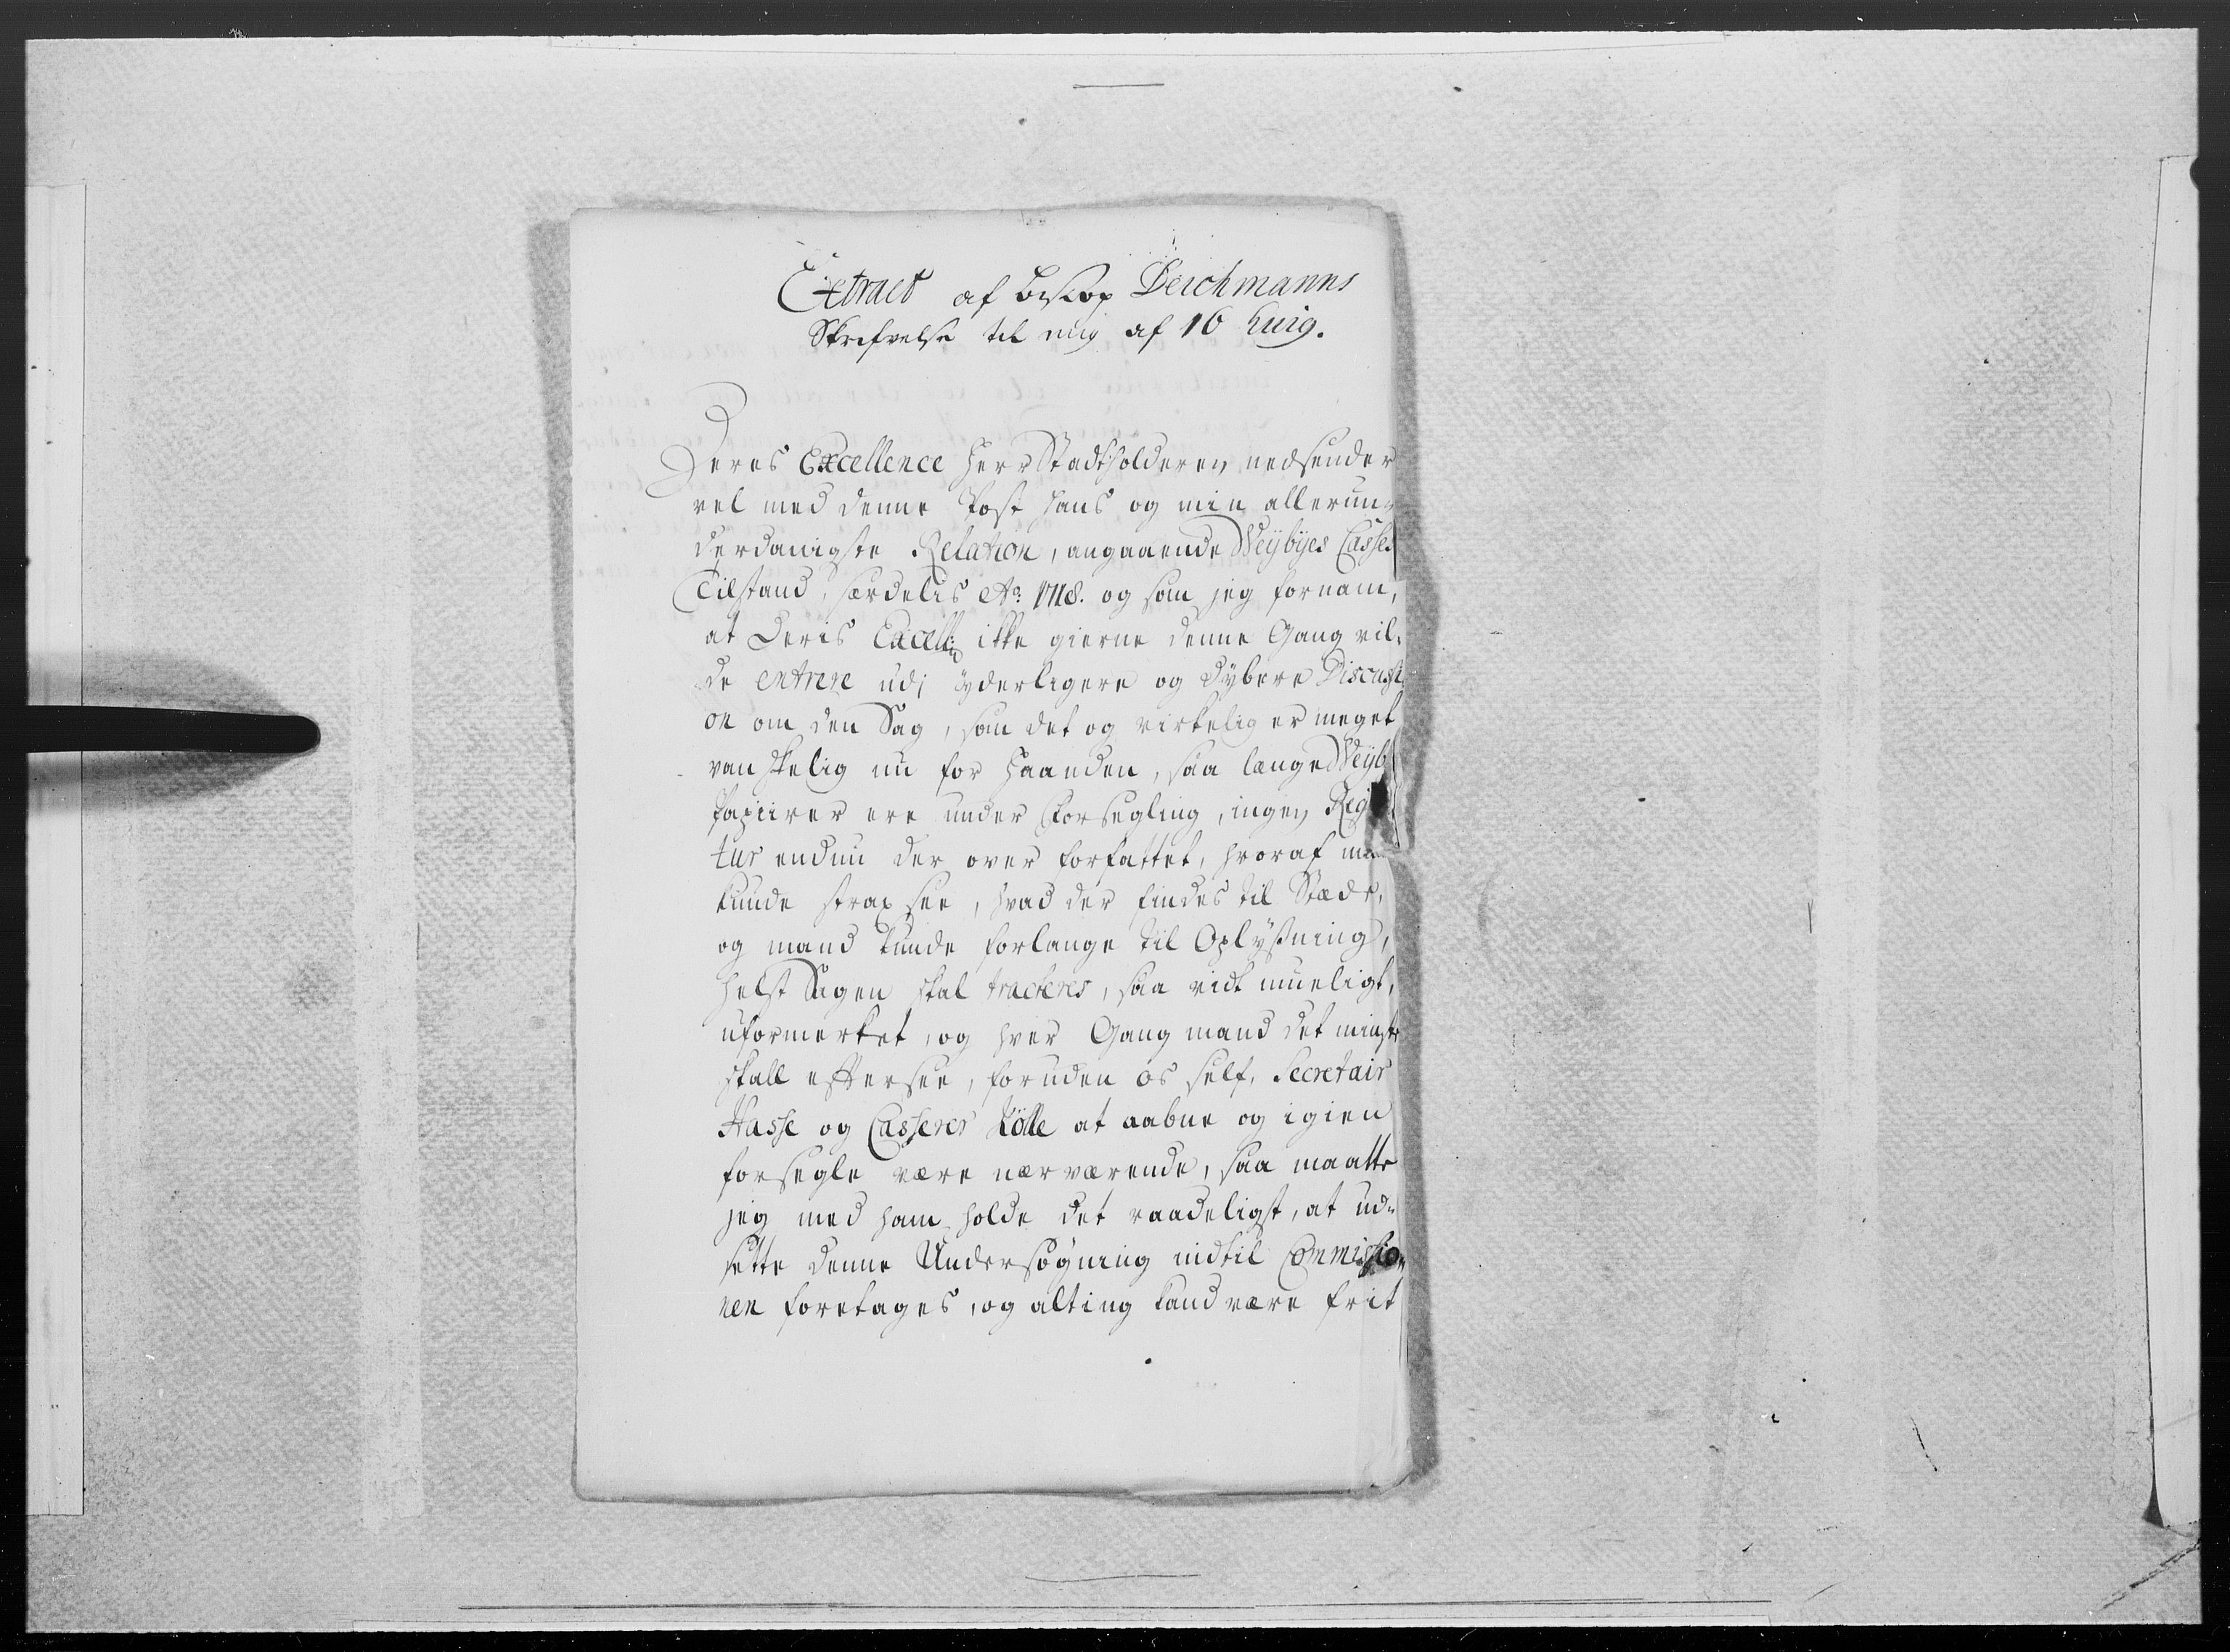 Extract af biskop Deichmanns
Skrifvelse til mig af 16 huig.
Deres Excellence Herr Stadtholderen nedsender
vel med denne Post hans og min allerun-
derdanigste Relation, angaaende Weybyes Casses
Tilstand, særdelis Ao: 1718. og som jeg fornam,
at Deris Excell: ikke gierne denne Gang vil-
de entrere udj ÿderligere og dÿbere Discussi
on om den Sag, som det og virkelig er meget
vanskelig nu for Haanden, saa længe Weyb
Papiirer ere under Forsegling, ingen Reg
tur endnu der over forfattet, hvoraf
kunde strax see, hvad der findes til Stæde,
og mand kunde forlange til Oplÿßning,
helst Sagen skal tracteres, saa vidt mueligt,
uformerket, og hver Gang mand det mingste
skall eftersee, foruden os self, Secretair
Hasse og Casserer Rölle at aabne og igien
forsegle være nærværende, saa maatte
jeg med ham holde det raadeligst, at ud-
sette denne Undersøgning indtil Commissio-
nen foretages, og alting kand være frit